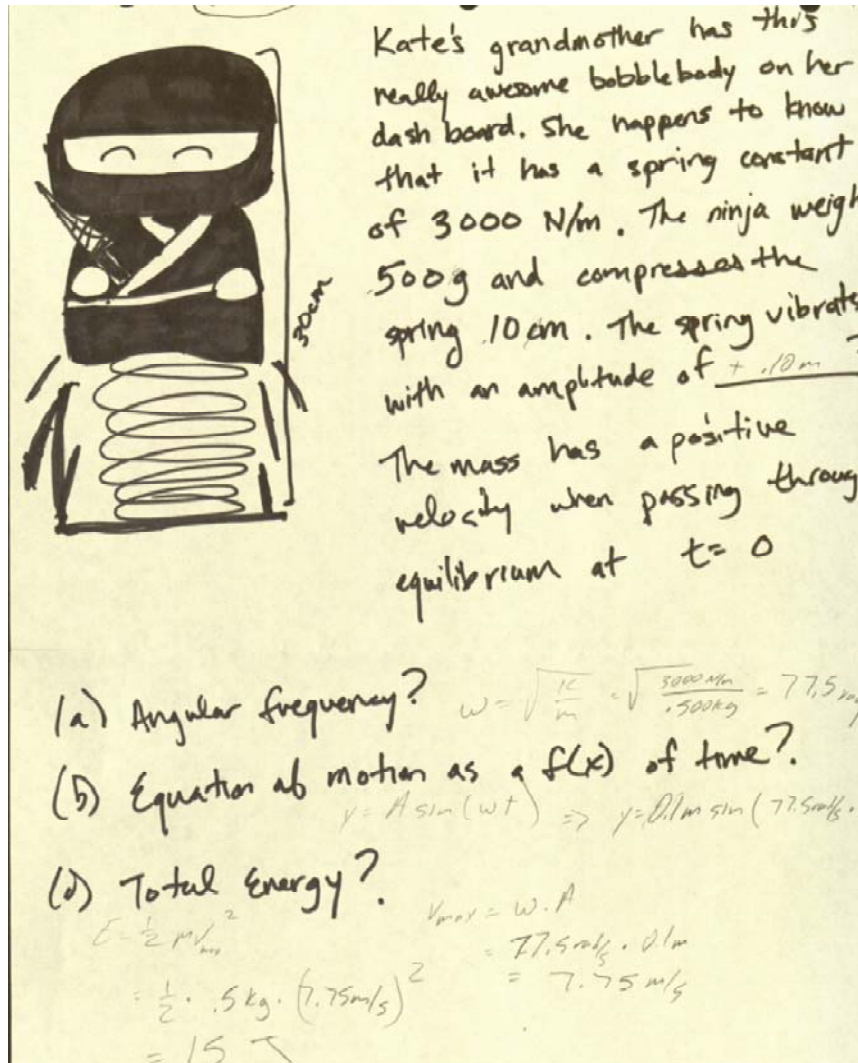 Kate's grandmother has this
really awesome bobblebody on her
dash board. She happens to know
that it has a spring constant
of 3000 N/m. The ninja weigh
500g and compresses the
spring 10 cm. The spring vibrate
with an amplitude of + .10m
The mass has a positive
velocity when passing throug
equilibrium at t= 0
30cm
(a) Angular frequency? ω = √k/m = √3000 N/m/.500kg = 77.5
(b) Equation of motion as a f(x) of time?
y= A sin(ωt) => y=0.1m sin(77.5rad/s ·
(d) Total Energy?
E = 1/2 MVmax² Vmax = ω·A
= 77.5rad/s · 0.1m
= 1/2 · .5kg · (7.75m/s)² = 7.75 m/s
= 15 J